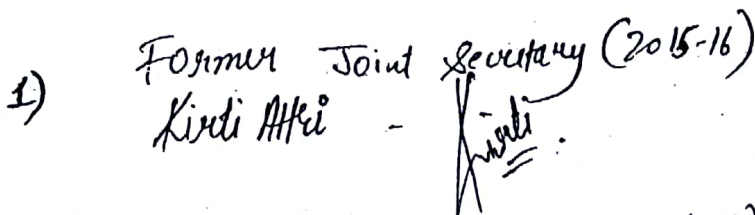 1) Former Joint Secretary (2015-16)
Kirti Attri - Kirti